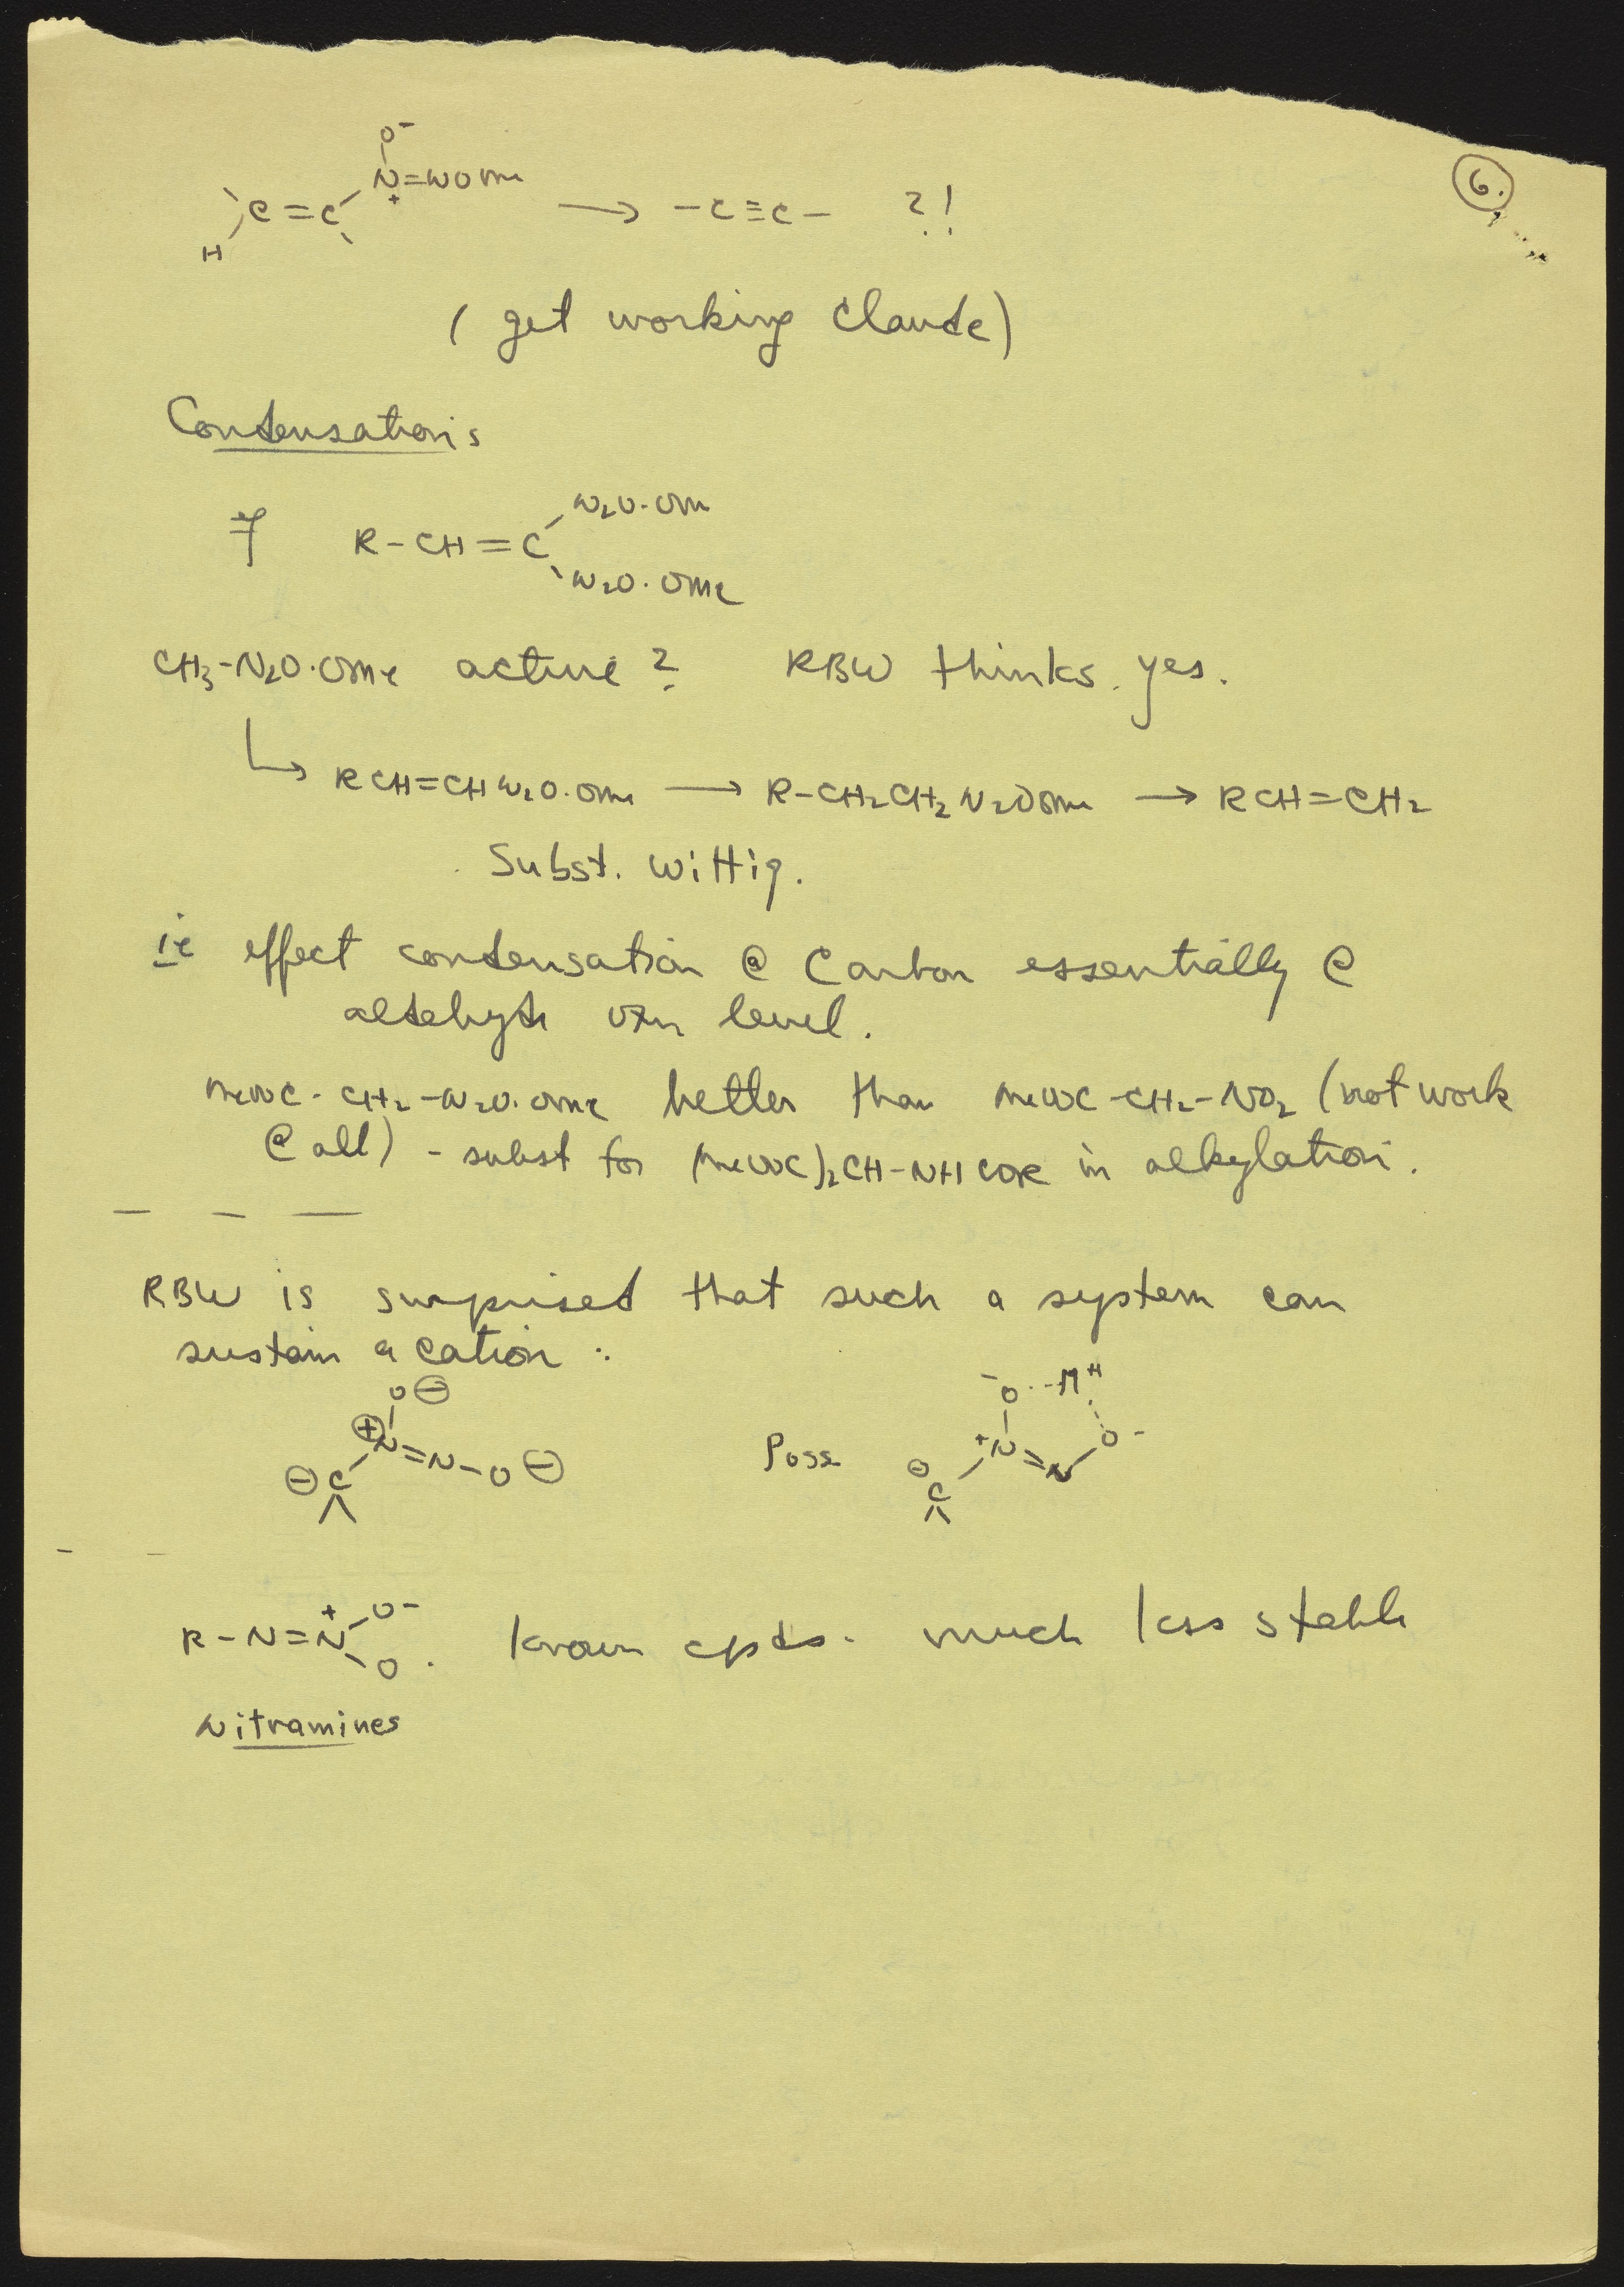 6.
O⁻
N⁺=NOMe
H C=C → -C≡C- ?!
(get working Claude)
Condensations
R-CH=C
N₂O·OMe
N₂O·OMe
CH₃-N₂O·OMe active? RBW thinks yes.
↳ RCH=CHN₂O·OMe → R-CH₂CH₂N₂OOMe → RCH=CH₂
Subst. Wittig.
ie effect condensation @ Carbon essentially @
aldehyde oxn level.
MeOOC-CH₂-N₂O·OMe better than MeOOC-CH₂-NO₂ (not work
@ all) - subst for (MeOOC)₂CH-NHCOR in alkylation.
RBW is surprised that such a system can
sustain a cation:
O⊖
⊕N=N-O⊖
⊖C
Poss
⁻O--M⁺⁺
⁺N=N O⁻
⊖C
R-N=N⁺ O⁻ O. known cpds. much less stable
Nitramines